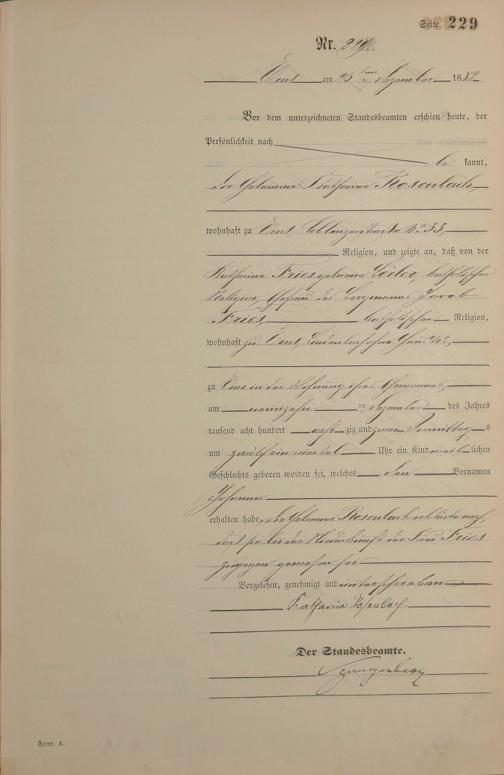 Seite 229
Nr. 229
Ems am 23 ten Dezember 1882
Vor dem unterzeichneten Standesbeamten erschien heute, der
Persönlichkeit nach
be kannt,
die Hebamme Katharina Rosenbach,
wohnhaft zu Ems Coblenzerstraße No 33,
Religion, und zeigte an, daß von der
Katharina Fries geborene katholischer
Religion, Ehefrau des Bergmanns Jacob
Fries, katholischer Religion,
wohnhaft zu Ems,
zu Ems in der Wohnung ihres Ehemannes,
am neunzehn ten Dezember des Jahres
tausend acht hundert acht zig und zwei Vormittag s
um zwölf ein viertel Uhr ein Kind männlichen
Geschlechts geboren worden sei, welches den Vornamen
Johann
erhalten habe, die Hebamme Rosenbach erklärte noch,
daß sie bei der Niederkunft der Frau Fries
zugegen gewesen sei
Vorgelesen, genehmigt und unterschrieben
Katharina Rosenbach
Der Standesbeamte.
Form. 1.